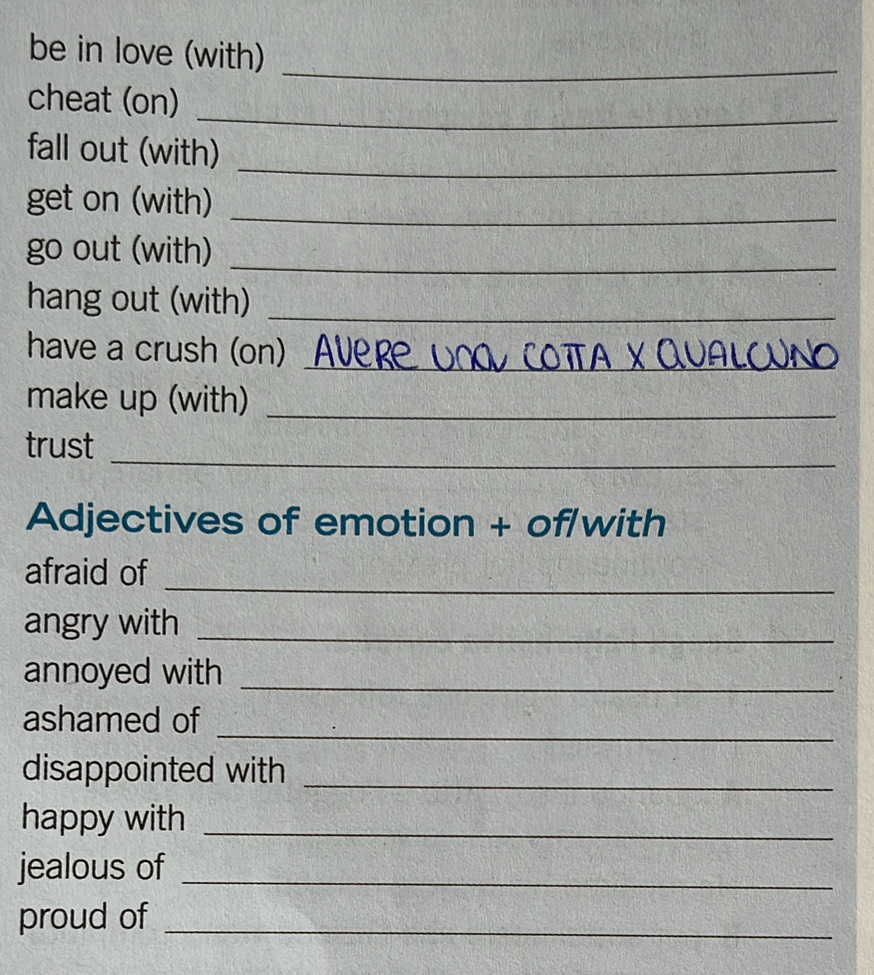 be in love (with)
cheat (on)
fall out (with)
get on (with)
go out (with)
hang out (with)
have a crush (on) AVERE UNA COTTA X QUALCUNO
make up (with)
trust
Adjectives of emotion + of/with
afraid of
angry with
annoyed with
ashamed of
disappointed with
happy with
jealous of
proud of